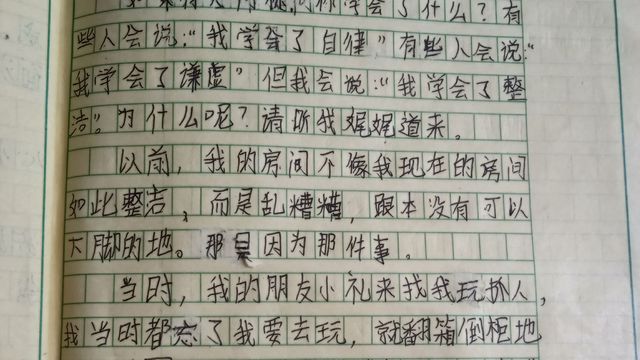 你学会了什么？有
些人会说：“我学会了自律”有些人会说：“
我学会了谦虚”但我会说：“我学会了整
洁”。为什么呢？请听我娓娓道来。
以前，我的房间不像我现在的房间
如此整洁，而是乱糟糟，跟本没有可以
大脚的地。那是因为那件事。
当时，我的朋友小礼来找我玩抓人，
我当时都忘了我要去玩，就翻箱倒柜地